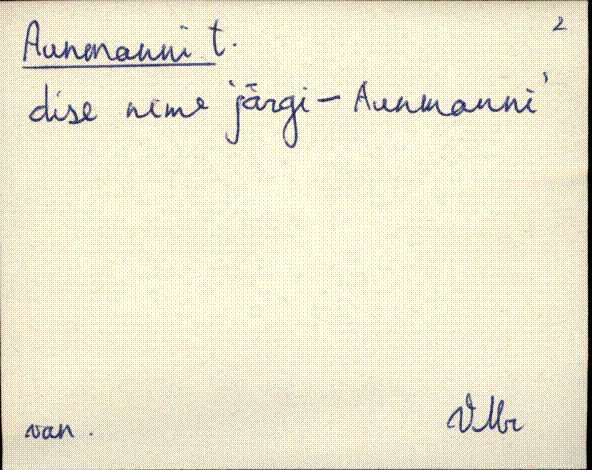 2
Aunmanni t.
dise neme järgi – Aunmanni'
van.
VMr